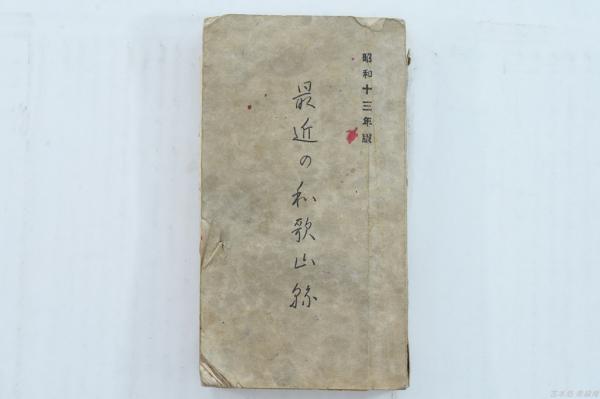 昭和十三年版
最近の和歌山縣